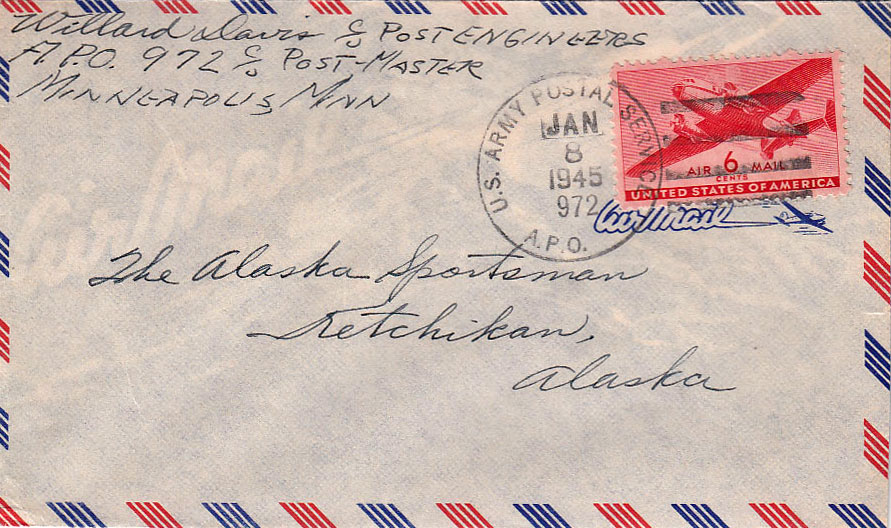 Willard Davis c/o POST ENGINEERS
A.P.O. 972 c/o POST-MASTER
MINNEAPOLIS MINN
U.S. ARMY POSTAL SERVICE
JAN
8
1945
972
A.P.O.
AIR 6 MAIL
CENTS
UNITED STATES OF AMERICA
Air Mail
The Alaska Sportsman
Ketchikan,
Alaska